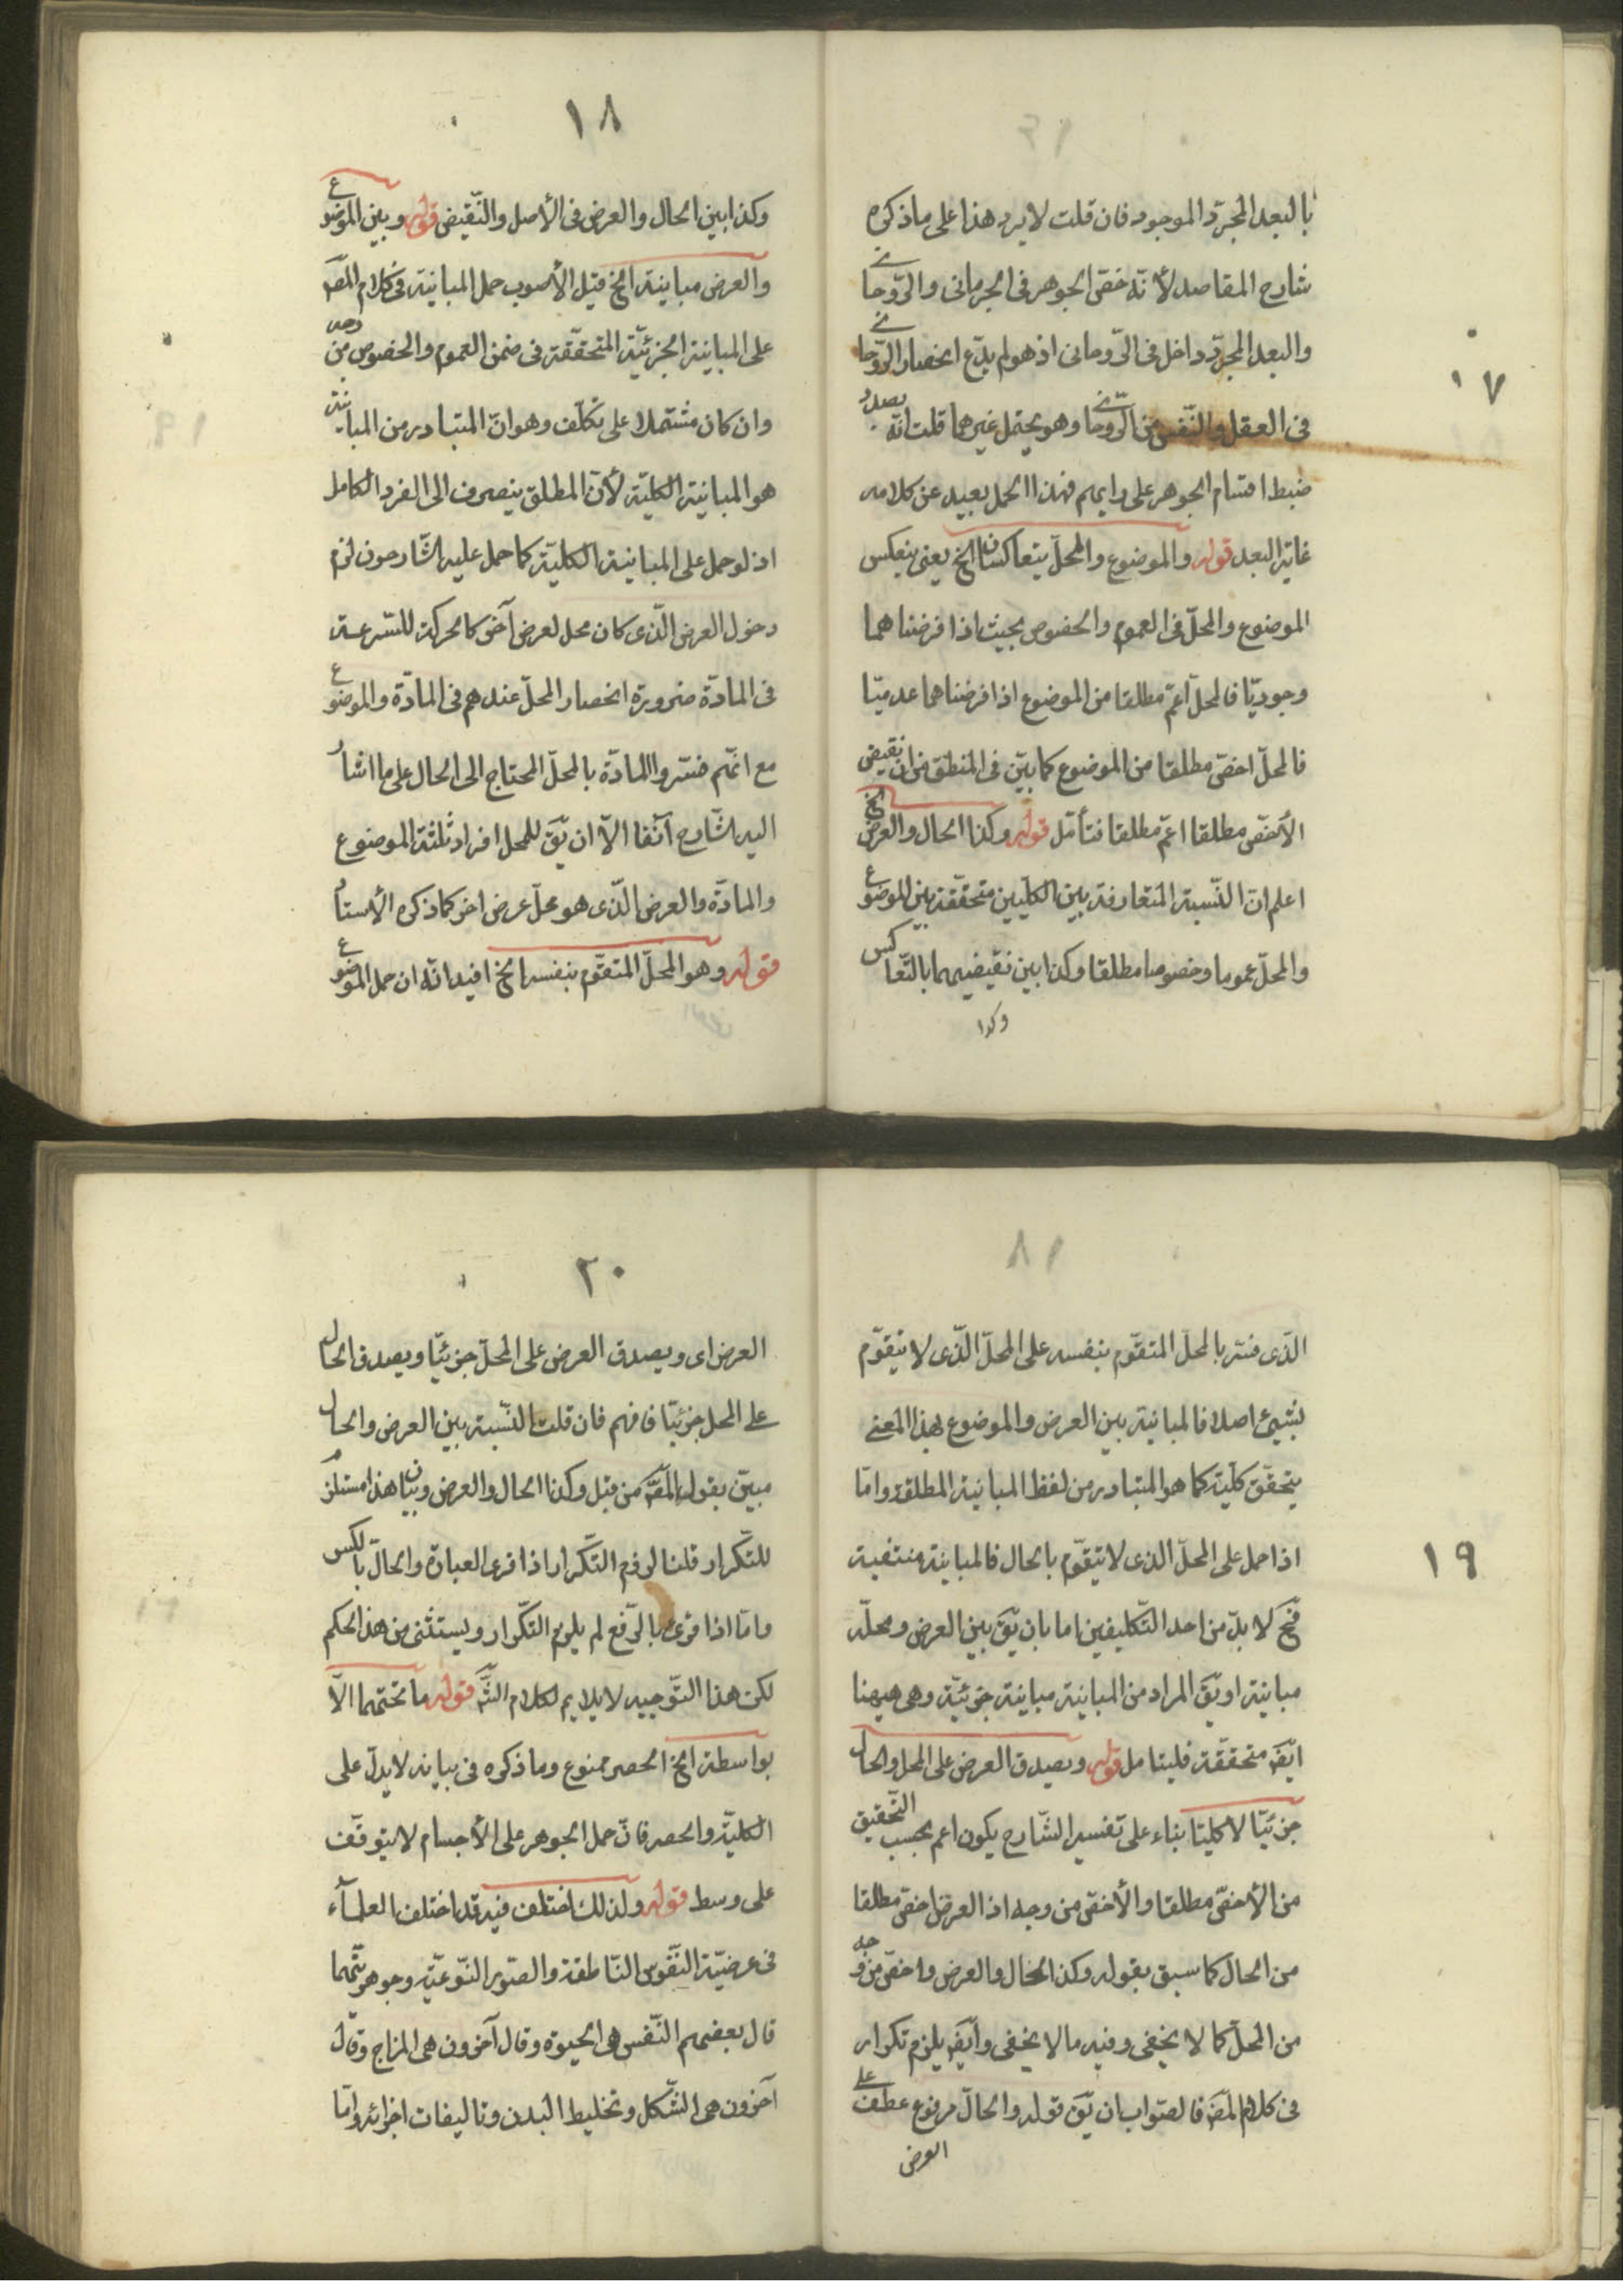 ١٧
بالبعد المجرّد الموجود فان قلت لا يرد هذا على ما ذكره
شارح المقاصد لأنّه خصّ الجوهر فى الجرمانى والرّوحانى
والبعد المجرّد داخل فى الرّوحانى اذ هو لم يدّع انحصار الرّوحانى
فى العقل والنّفس من الرّوحانى وهو يحتمل غيرهما قلت انّه بصدد
ضبط اقسام الجوهر على رايهم فهذا الحمل بعيد عن كلامه
غاية البعد قوله والموضوع والمحلّ يتعاكسان الخ يعنى ينعكس
الموضوع والمحلّ فى العموم والخصوص بحيث اذا فرضناهما
وجوديّا فالمحلّ اعمّ مطلقا من الموضوع اذا فرضناهما عدميّا
فالمحلّ اخصّ مطلقا من الموضوع كما بيّن فى المنطق من ان نقيض
الأخصّ مطلقا اعمّ مطلقا فتأمّل قوله وكذا الحال والعرض الخ
اعلم انّ النّسبة المتعارفة بين الكلّيين متحقّقة بين الموضوع
والمحلّ عموما وخصوصا مطلقا وكذا بين نقيضيهما بالتّعاكس
وكذا
١٨
وكذا بين الحال والعرض فى الأصل والنّقيض قوله وبين الموضوع
والعرض مباينة الخ قيل الأصوب حمل المباينة فى كلام المصـ
على المباينة الجزئيّة المتحقّقة فى ضمن العموم والخصوص من وجه
وان كان مشتملا على تكلّف وهو انّ المتبادر من المباينة
هو المباينة الكليّة لأنّ المطلق ينصرف الى الفرد الكامل
اذ لو حمل على المباينة الكليّة كما حمل عليه الشّارحون لزم
دخول العرض الّذى كان محل لعرض آخر كالحركة للسّرعة
فى المادّة ضرورة انحصار المحلّ عندهم فى المادّة والموضوع
مع انّهم فسّروا المادّة بالمحلّ المحتاج الى الحال على ما اشار
اليه الشّارح آنفا الاّ ان يّقَ للمحل افراد ثلثة الموضوع
والمادّة والعرض الّذى هو محلّ عرض اخر كما ذكره الأستاد
قوله وهو المحلّ المتقوّم بنفسه الخ افيد انّه ان حمل الموضوع
١٩
الّذى فسّر بالمحلّ المتقوّم بنفسه على المحلّ الّذى لا يتقوّم
بشيئ اصلا فالمباينة بين العرض والموضوع بهذا المعنى
يتحقّق كليّة كما هو المتبادر من لفظ المباينة المطلقة وامّا
اذا حمل على المحلّ الذى لا يتقوّم بالحال فالمباينة منتفية
فح لا بدّ من احد التّكليفين اما بان يّقَ بين العرض ومحلّه
مباينة او يّقَ المراد من المباينة مباينة جزئيّة وهى ههنا
ايّضـ متحقّقة فليتامل قوله ويصدق العرض على المحل والحال
جزئيّا لا كليّا بناء على تفسير الشّارح يكون اعم بحسب التّحقيق
من الأخصّ مطلقا والأخصّ من وجه اذ العرض اخصّ مطلقا
من الحال كما سبق بقوله وكذا الحال والعرض واخصّ من وجه
من المحلّ كما لا يخفى وفيه ما لا يخفى وايّضـ يلزم تكرار
فى كلام المصـ فالصّواب ان يّقَ قوله والحالّ مرفوع عطف على
العرض
٢٠
العرض اى ويصدق العرض على المحلّ جزئيّا ويصدق الحال
على المحل جزئيّا فافهم فان قلت النّسبة بين العرض والحال
مبيّن بقول المصـ من قبل وكذا الحال والعرض وبيان هذا مستلزم
للتّكرار قلنا لزوم التّكرار اذا قرئ العبارة والحالّ بالكسر
وامّا اذا قرئ بالرّفع لم يلزم التّكرار ويستثنى من هذا الحكم
لكن هذا التّوجيه لا يلايم لكلام الشّـ قوله ما تحتهما الاّ
بواسطة الخ الحصر ممنوع وما ذكره فى بيانه لا يدلّ على
الكليّة والحصر فانّ حمل الجوهر على الأجسام لا يتوقّف
على وسط قوله ولذلك اختلف فيه قد اختلف العلمآء
فى عرضيّة النّفوس النّاطقة والصّور النّوعيّة وجوهريّتهما
قال بعضهم النّفس هى الحيوة وقال آخرون هى المزاج وقال
آخرون هى الشّكل وتخليط البدن وتاليفات اجزائه وامّا